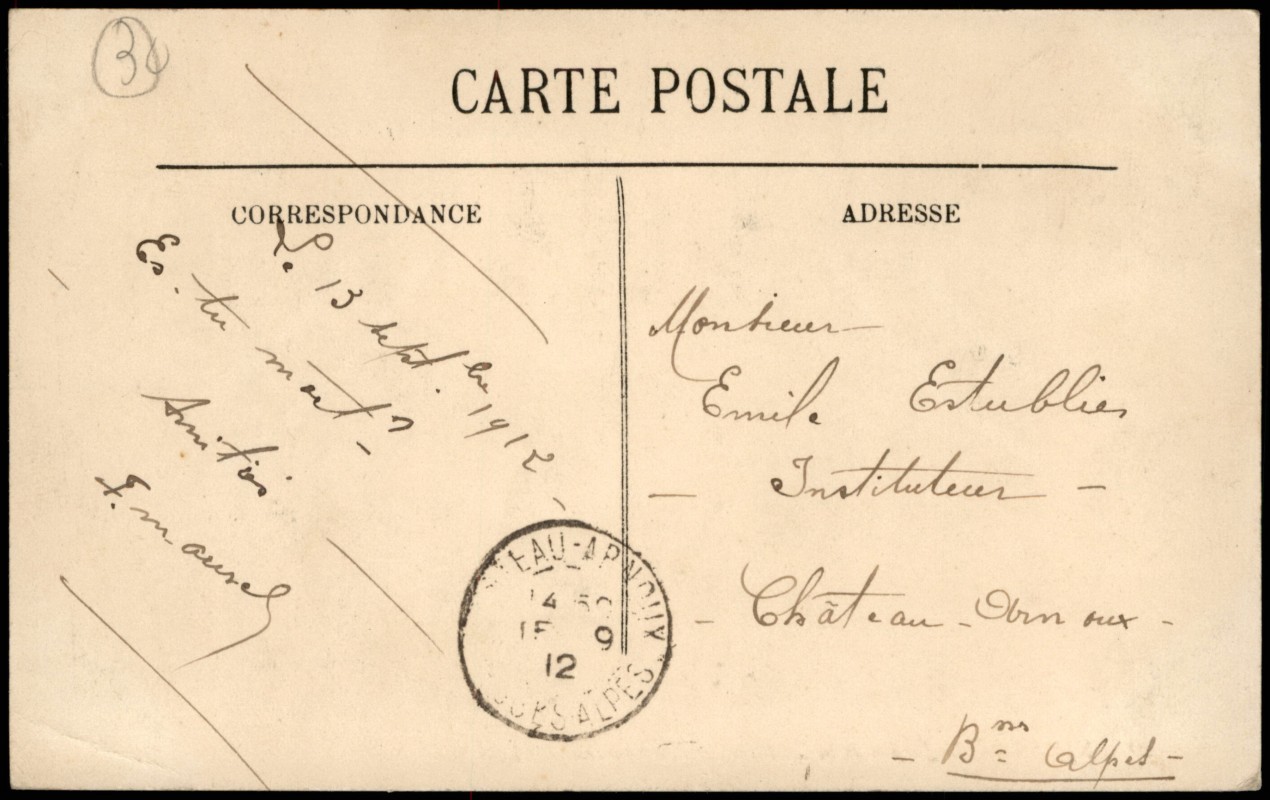 34
CARTE POSTALE
CORRESPONDANCE
ADRESSE
Le 13 sept.bre 1912
Es-tu mort?
Amitiés
F. Maurel
Monsieur
Emile Estublier
- Instituteur -
- Château-Arnoux -
- Bses Alpes -
TEAU-ARNOUX
14
9
12
SES ALPES